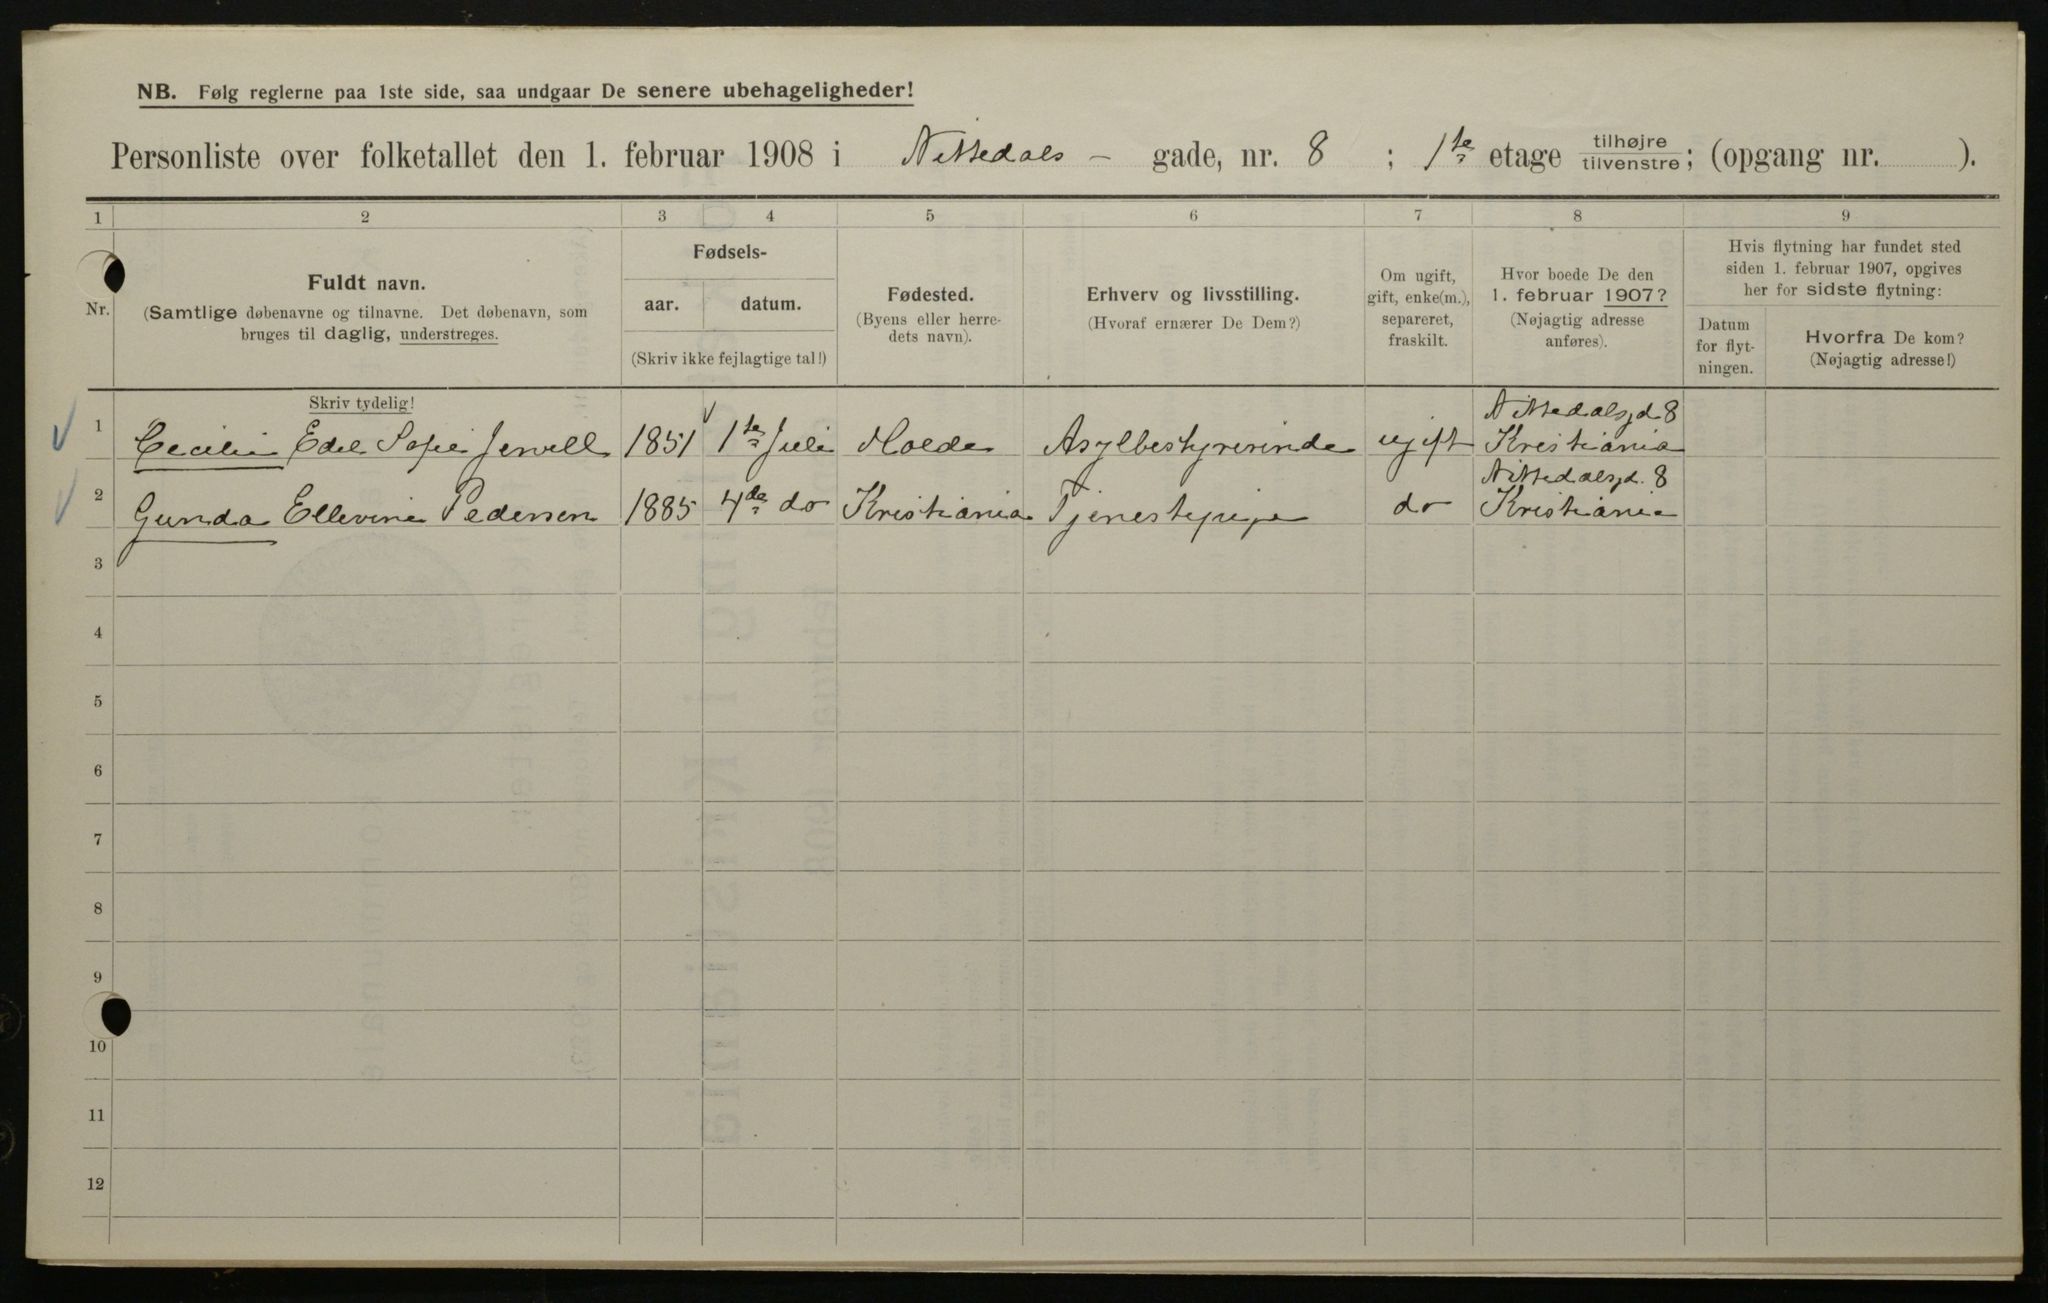 NB. Følg reglerne paa 1ste side, saa undgaar De senere ubehageligheder!
Personliste over folketallet den 1. februar 1908 i Nittedals - gade, nr. 8 ; 1ste etage tilhøjre tilvenstre; (opgang nr. ).
1 2 3 4 5 6 7 8 9
Nr.
Fuldt navn.
(Samtlige døbenavne og tilnavne. Det døbenavn, som
bruges til daglig, understreges.
Fødsels-
aar. datum.
(Skriv ikke fejlagtige tal!)
Fødested.
(Byens eller herre-
dets navn).
Erhverv og livsstilling.
(Hvoraf ernærer De Dem?)
Om ugift,
gift, enke(m.),
separeret,
fraskilt.
Hvor boede De den
1. februar 1907?
(Nøjagtig adresse
anføres).
Hvis flytning har fundet sted
siden 1. februar 1907, opgives
her for sidste flytning:
Datum
for flyt-
ningen.
Hvorfra De kom?
(Nøjagtig adresse!)
Skriv tydelig!
Nittedalsgd. 8
1 Cecilie Edel Sofie Jervell 1851 1ste Juli Molde Asylbestyrerinde ugift Kristiania
Nittedalsgd. 8
2 Gunda Ellevine Pedersen 1885 4de do Kristiania Tjenestepige do Kristiania
3
4
5
6
7
8
9
10
11
12